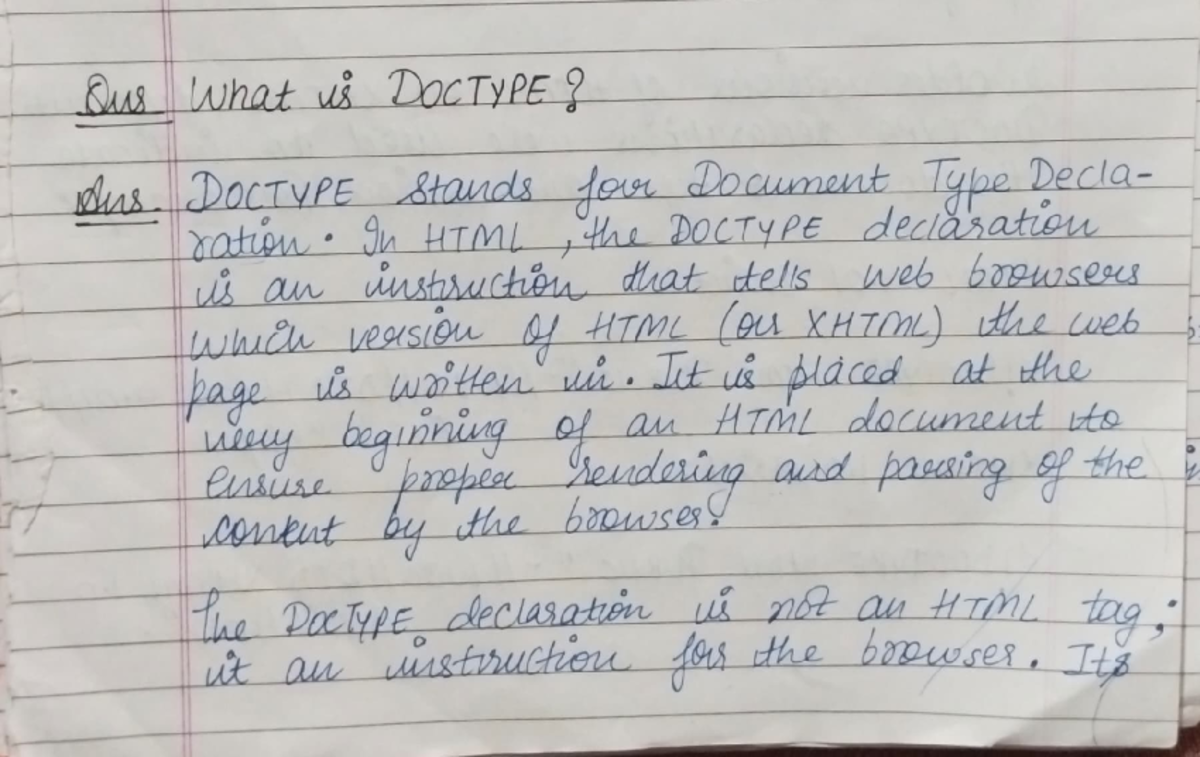 Qus What is DOCTYPE?
Ans. DOCTYPE stands for Document Type Decla-
ration. In HTML, the DOCTYPE declaration
is an instruction that tells web browsers
which version of HTML (or XHTML) the web
page is written in. It is placed at the
very beginning of an HTML document to
ensure proper rendering and parsing of the
content by the browser.
The DOCTYPE declaration is not an HTML tag;
it an instruction for the browser. Its